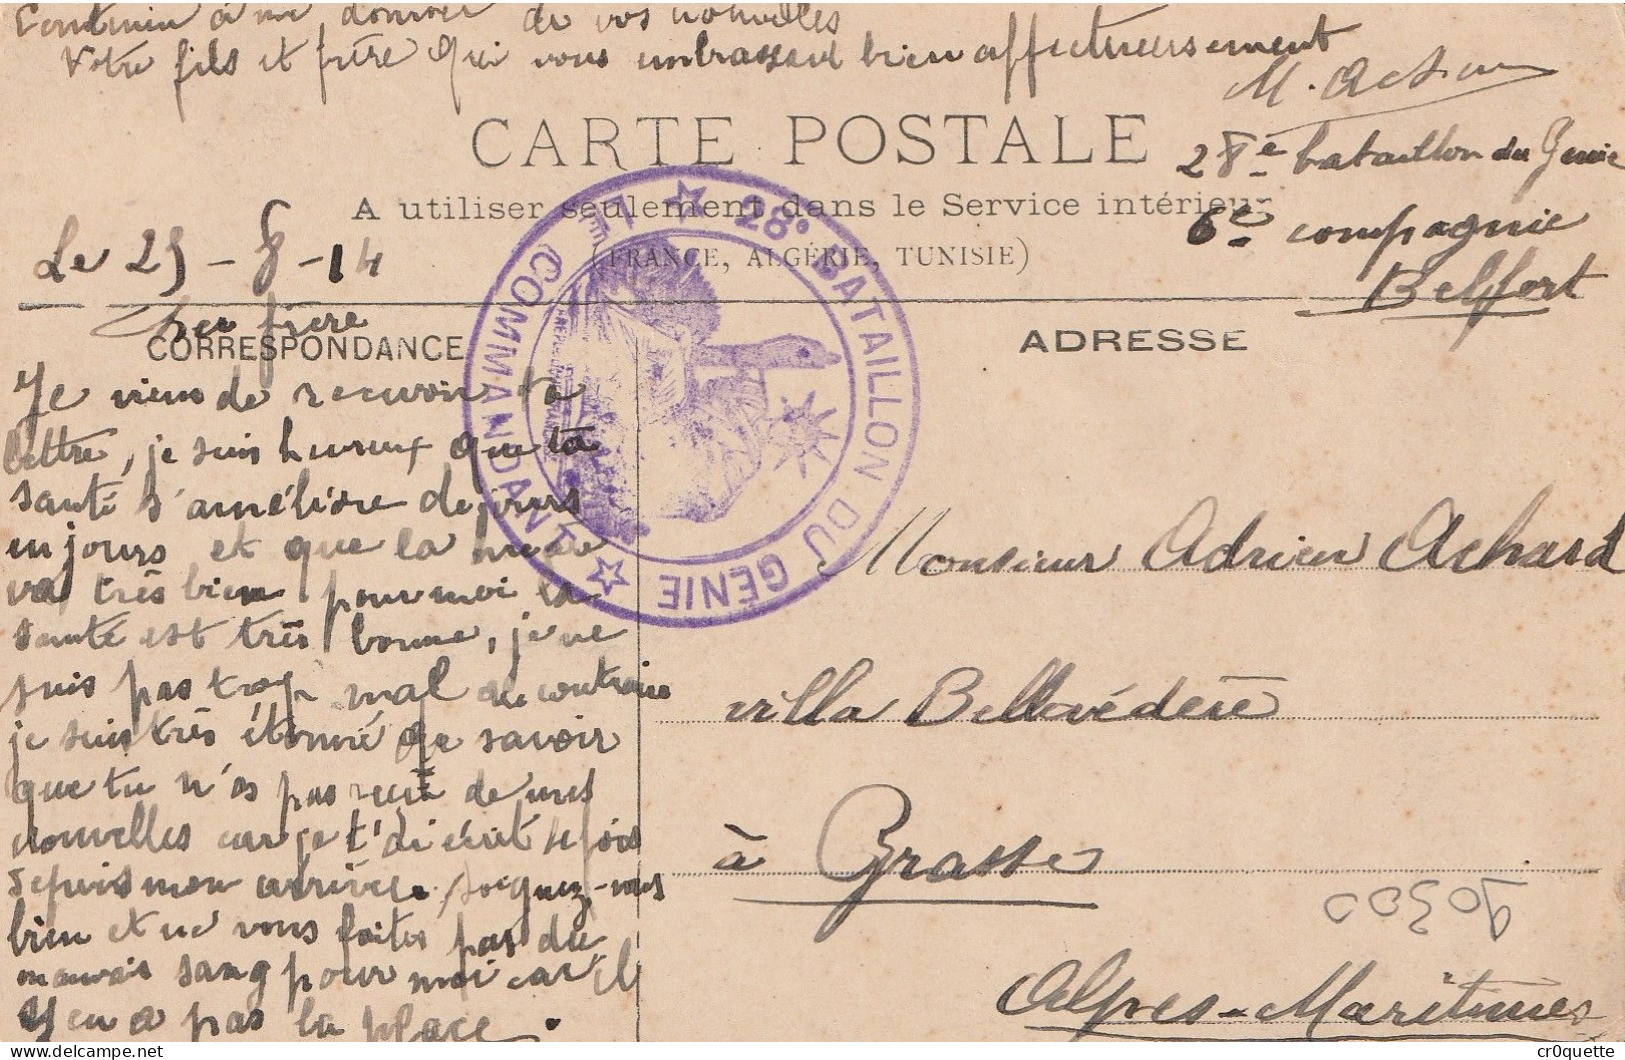 Continuer à me donner de vos nouvelles
Votre fils et frère qui vous embrassent bien affectueusement
M. Achard
CARTE POSTALE
A utiliser seulement dans le Service intérieur
(FRANCE, ALGÉRIE, TUNISIE)
28e bataillon du Génie
6e compagnie
Belfort
LE COMMANDANT
28e BATAILLON DU GÉNIE
Le 25-8-14
Cher frère
CORRESPONDANCE
Je viens de recevoir ta
lettre, je suis hureux que ta
santé s'améliore de jours
en jours et que la
va très bien pour moi la
santé est très bonne, je ne
suis pas trop mal au contraire
je suis très étonné de savoir
que tu n'as pas reçu de mes
nouvelles car je t'ai écrit fois
depuis mon arrivée. Soignez-vous
bien et ne vous faites pas du
mauvais sang pour moi car il
y en a pas la place.
ADRESSE
Monsieur Adrien Achard
villa Bellavédère
à Grasse
Alpes-Maritimes
90300
cr0quette